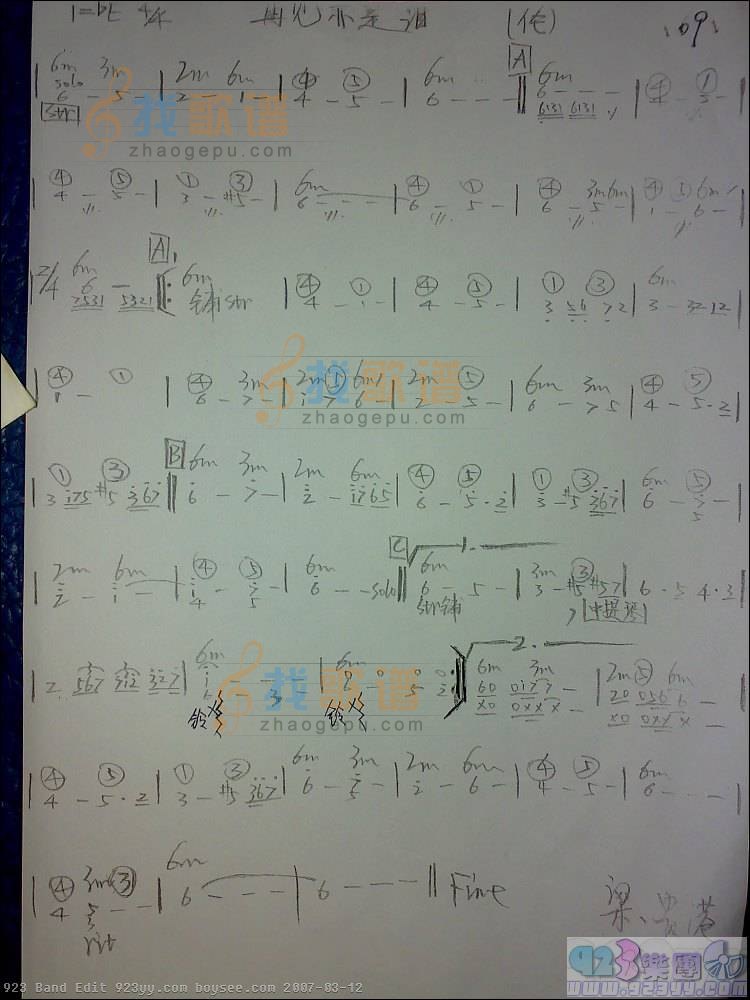 1=bE 4/4 再见亦是泪 (佗) 109
6m 3m | 2m 6m | ④ ⑤ | 6m A 6m | ④ ①
solo
6 - 5 - | 2 - 1 - | 4 - 5 - | 6 - - - || 6131 6131 | 4 - 3 -
找歌谱
zhaogepu.com
④ ⑤ | ① ③ | 6m | ④ ① | ④ 3m 6m | ④ ⑤ 6m
4 - 5 - | 3 - #5 - | 6 - - - | 6 - 5 - | 6 - 5 - | 1 - 6 -
A1
2/4 6m | 6m | ④ ① | ④ ⑤ | ① ③ | 6m
2531 5321 铺str | 4 - 1 - | 4 - 5 - | 3 56 7 2 | 3 - 32 12
④ ① | ④ 3m | 2m ⑤ 6m | 2m ⑤ | 6m 3m | ④ ⑤
1 - | 6 - 7 - | 1 7 6 - | 2 - 5 - | 6 - 7 5 | 4 - 5 · 2
找歌谱
zhaogepu.com
① ③ B 6m 3m | 2m 6m | ④ ⑤ | ① ③ | 6m ⑤
3 175 #5 367 || 6 - 7 - | 2 - 1765 | 6 - 5 · 2 | 3 - #5 367 | 6 - 5 -
C 1.
2m 6m | ④ ⑤ | 6m | 6m | 3m ③
2 - 1 - | 4 - 5 - | 6 - - solo || 6 - 5 - | 3 - #5 #57 | 6 · 5 4 · 3
str铺 中提琴
2.
2 · 567 712 327 | 6m | 6m | 6m 3m | 2m ⑤ 6m
60 0177 - | 20 056 6 -
x0 0xxx - | x0 0xxx -
铃 铃
找歌谱
zhaogepu.com
④ ⑤ | ① ③ | 6m 3m | 2m 6m | ④ ⑤ | 6m
4 - 5 · 2 | 3 - #5 367 | 6 - 5 - | 2 - 6 - | 4 - 5 - | 6 - - -
④ 3m ③ | 6m
4 5 - - | 6 - - - | 6 - - - || Fine
rit
923樂團
www.923yy.com
923 Band Edit 923yy.com boysee.com 2007-03-12